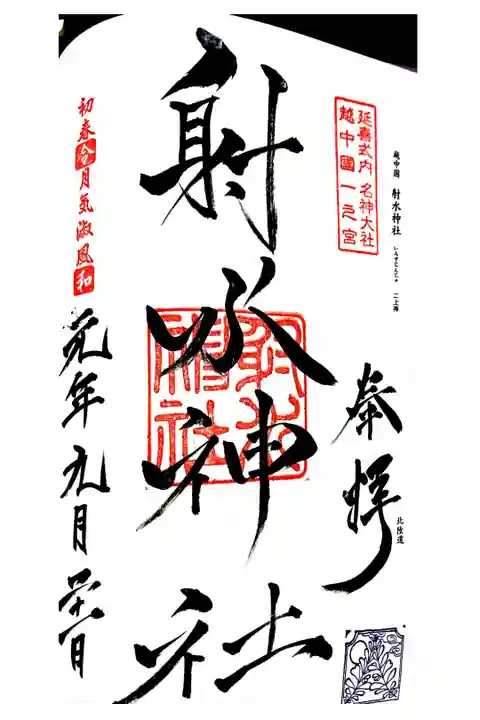 越中國 射水神社 いみずじんじゃ 二上神
北陸道
延喜式内 名神大社
越中國一之宮
奉拝
射水神社
射水
神社
初春令月気淑風和
元年九月廿一日